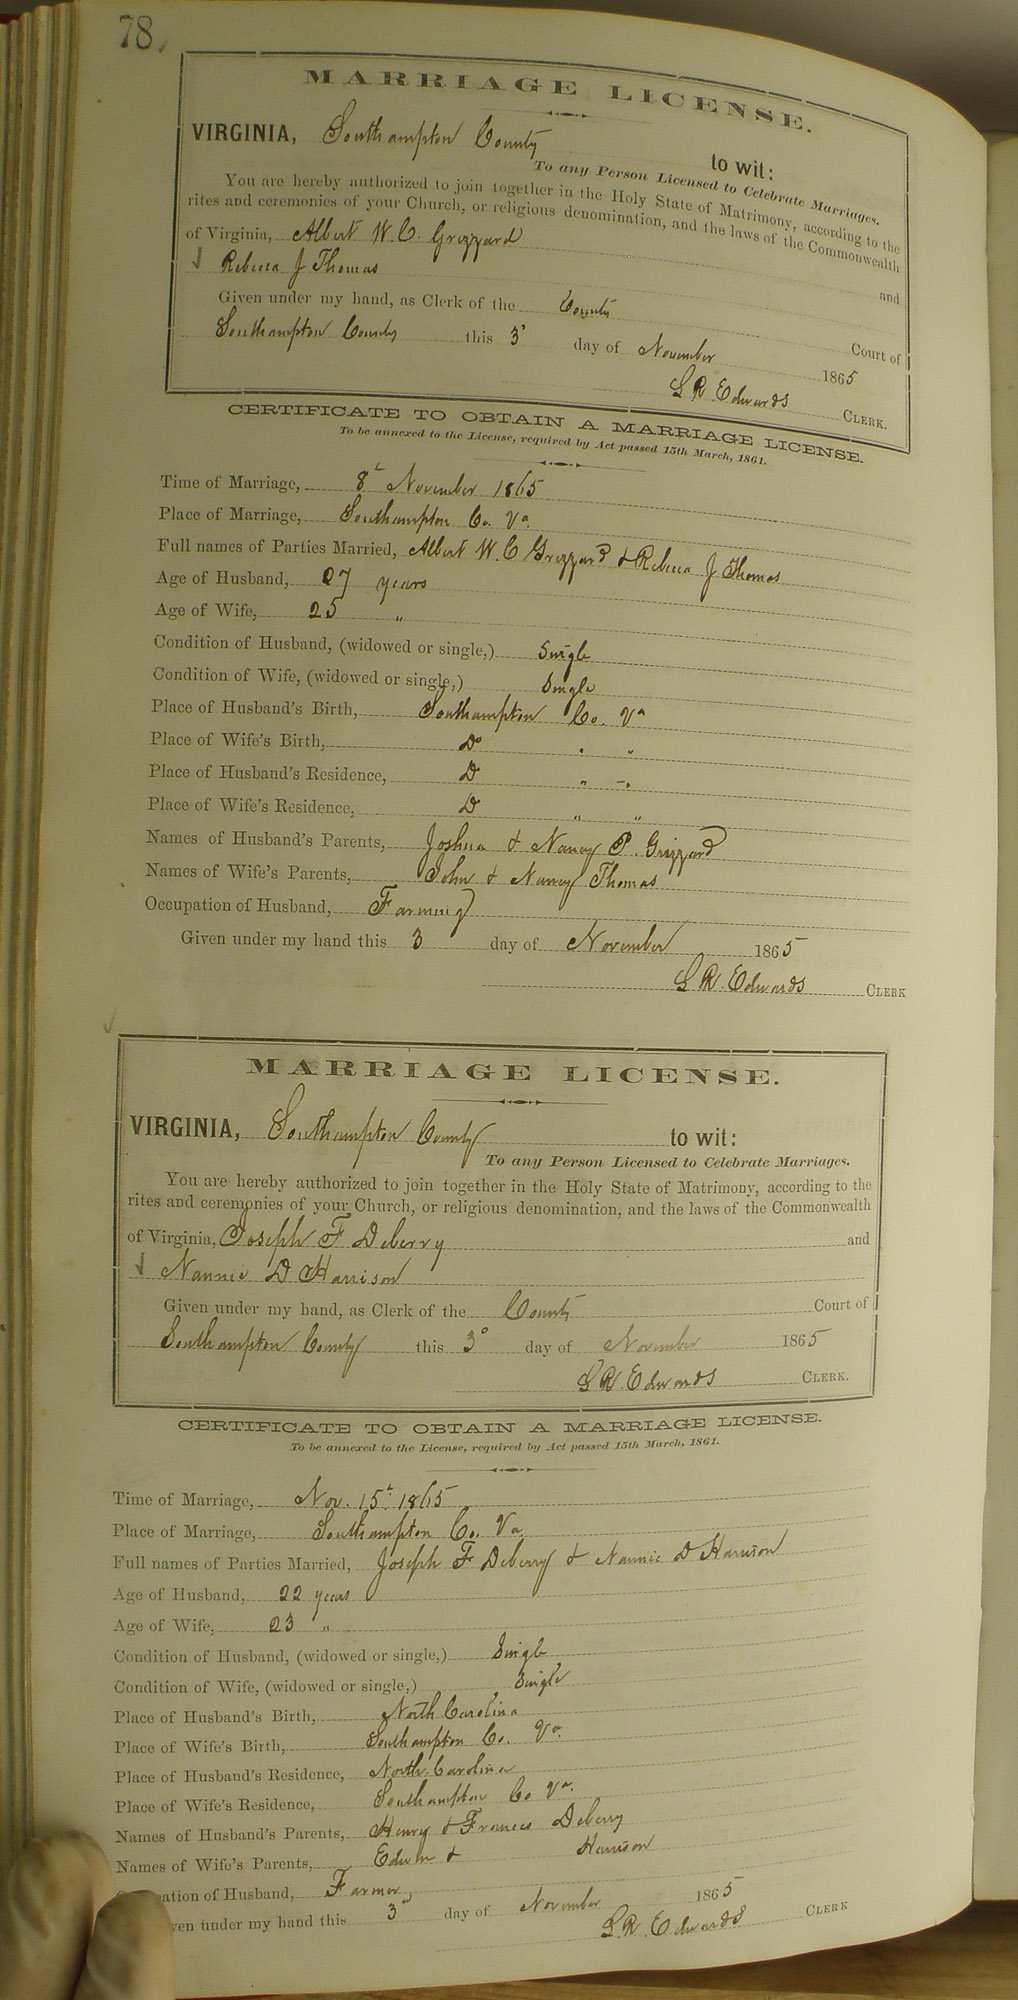 78,
MARRIAGE LICENSE.
VIRGINIA, Southampton County to wit:
To any Person Licensed to Celebrate Marriages.
You are hereby authorized to join together in the Holy State of Matrimony, according to the
rites and ceremonies of your Church, or religious denomination, and the laws of the Commonwealth
of Virginia, Albert W. C. Grizzard and
Rebecca J Thomas
Given under my hand, as Clerk of the County Court of
Southampton County this 3d day of November 1865
L R Edwards CLERK.
CERTIFICATE TO OBTAIN A MARRIAGE LICENSE.
To be annexed to the License, required by Act passed 15th March, 1861.
Time of Marriage, 8t November 1865
Place of Marriage, Southampton Co. Va
Full names of Parties Married, Albert W. C Grizzard & Rebecca J Thomas
Age of Husband, 27 years
Age of Wife, 25 "
Condition of Husband, (widowed or single,) Single
Condition of Wife, (widowed or single,) Single
Place of Husband's Birth, Southampton Co. Va
Place of Wife's Birth, Do " "
Place of Husband's Residence, D " "
Place of Wife's Residence, D " "
Names of Husband's Parents, Joshua & Nancy P. Grizzard
Names of Wife's Parents, John & Nancy Thomas
Occupation of Husband, Farming
Given under my hand this 3 day of November 1865
L R. Edwards CLERK
MARRIAGE LICENSE.
VIRGINIA, Southampton County to wit:
To any Person Licensed to Celebrate Marriages.
You are hereby authorized to join together in the Holy State of Matrimony, according to the
rites and ceremonies of your Church, or religious denomination, and the laws of the Commonwealth
of Virginia, Joseph F Deberry and
Nannie D Harrison
Given under my hand, as Clerk of the County Court of
Southampton County this 3d day of November 1865
L R. Edwards CLERK.
CERTIFICATE TO OBTAIN A MARRIAGE LICENSE.
To be annexed to the License, required by Act passed 15th March, 1861.
Time of Marriage, Nov. 15t 1865
Place of Marriage, Southampton Co. Va
Full names of Parties Married, Joseph F Deberry & Nannie D Harrison
Age of Husband, 22 years
Age of Wife, 23 "
Condition of Husband, (widowed or single,) Single
Condition of Wife, (widowed or single,) Single
Place of Husband's Birth, North Carolina
Place of Wife's Birth, Southampton Co. Va.
Place of Husband's Residence, North Carolina
Place of Wife's Residence, Southampton Co Va.
Names of Husband's Parents, Henry & Frances Deberry
Names of Wife's Parents, Edwin & Harrison
ation of Husband, Farmer
ven under my hand this 3d day of November 1865
L. R. Edwards CLERK